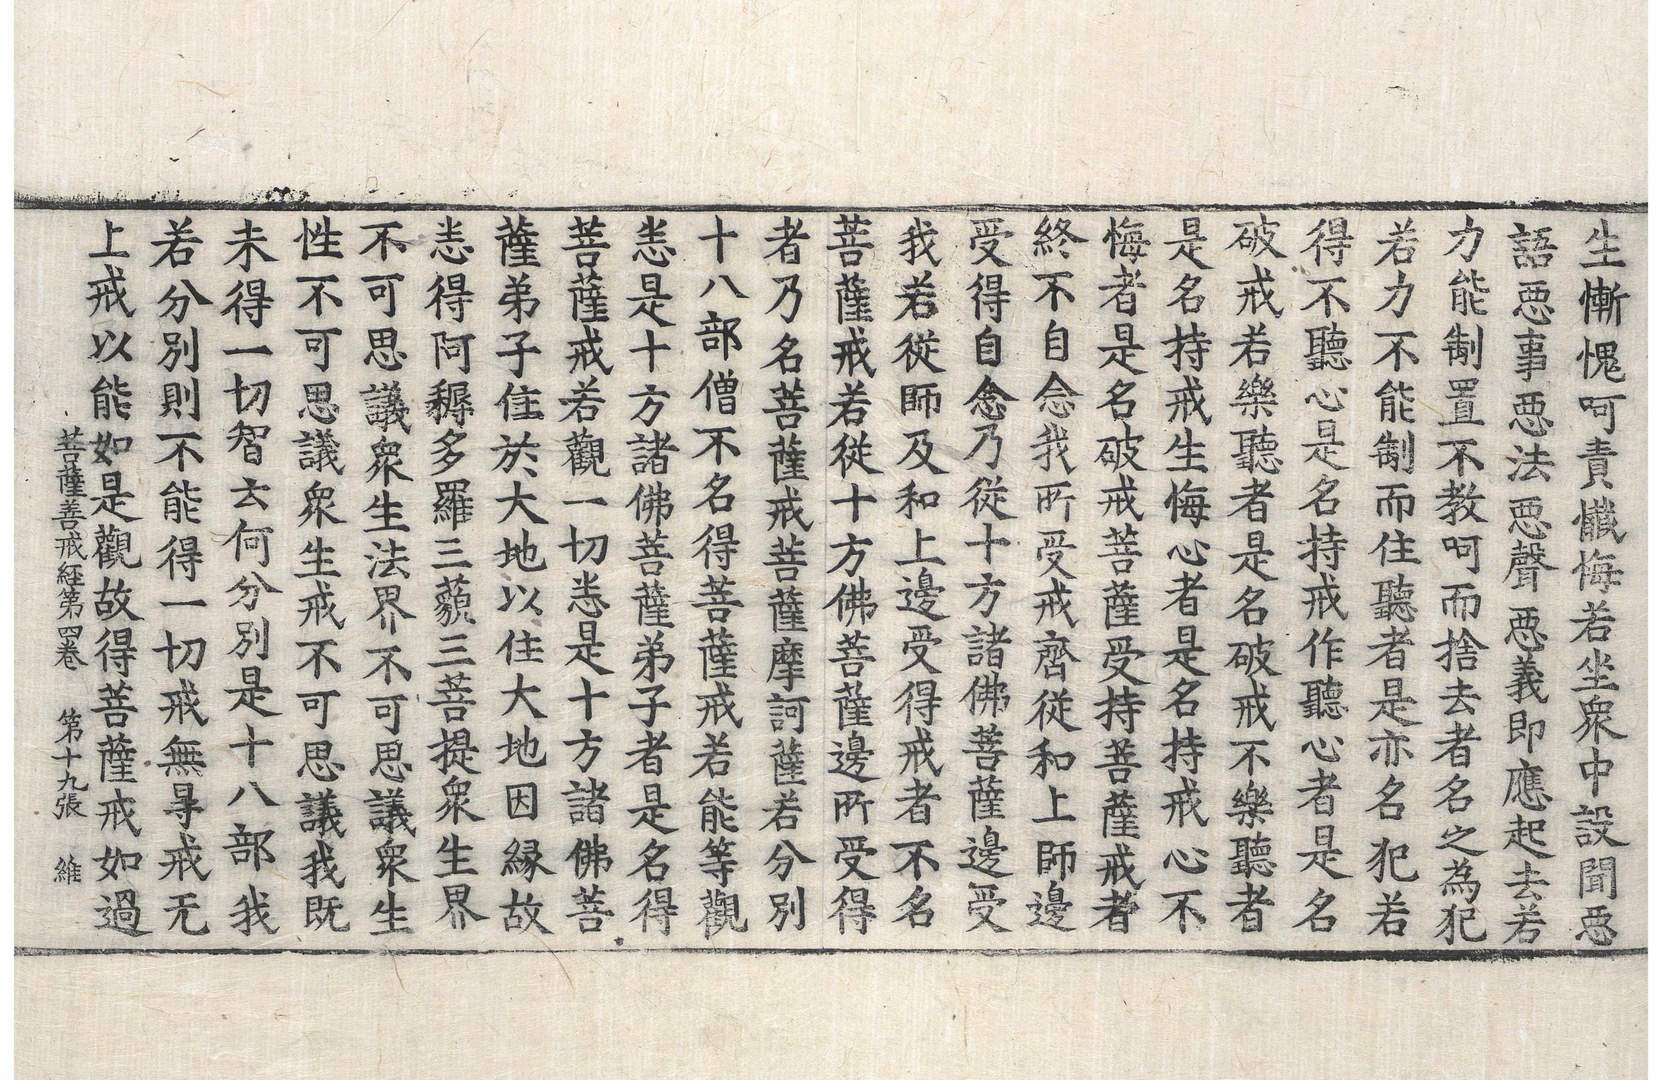 生慚愧呵責懺悔若坐衆中設聞惡
語惡事惡法惡聲惡義即應起去若
力能制置不教呵而捨去者名之為犯
若力不能制而住聽者是亦名犯若
得不聽心是名持戒作聽心者是名
破戒若樂聽者是名破戒不樂聽者
是名持戒生悔心者是名持戒心不
悔者是名破戒菩薩受持菩薩戒者
終不自念我所受戒齊從和上師邊
受得自念乃從十方諸佛菩薩邊受
我若從師及和上邊受得戒者不名
菩薩戒若從十方佛菩薩邊所受得
者乃名菩薩戒菩薩摩訶薩若分別
十八部僧不名得菩薩戒若能等觀
悉是十方諸佛菩薩弟子者是名得
菩薩戒若觀一切悉是十方諸佛菩
薩弟子住於大地以住大地因緣故
悉得阿耨多羅三藐三菩提衆生界
不可思議衆生法界不可思議衆生
性不可思議衆生戒不可思議我既
未得一切智云何分別是十八部我
若分別則不能得一切戒無㝵戒无
上戒以能如是觀故得菩薩戒如過
菩薩善戒經第四卷 第十九張 維